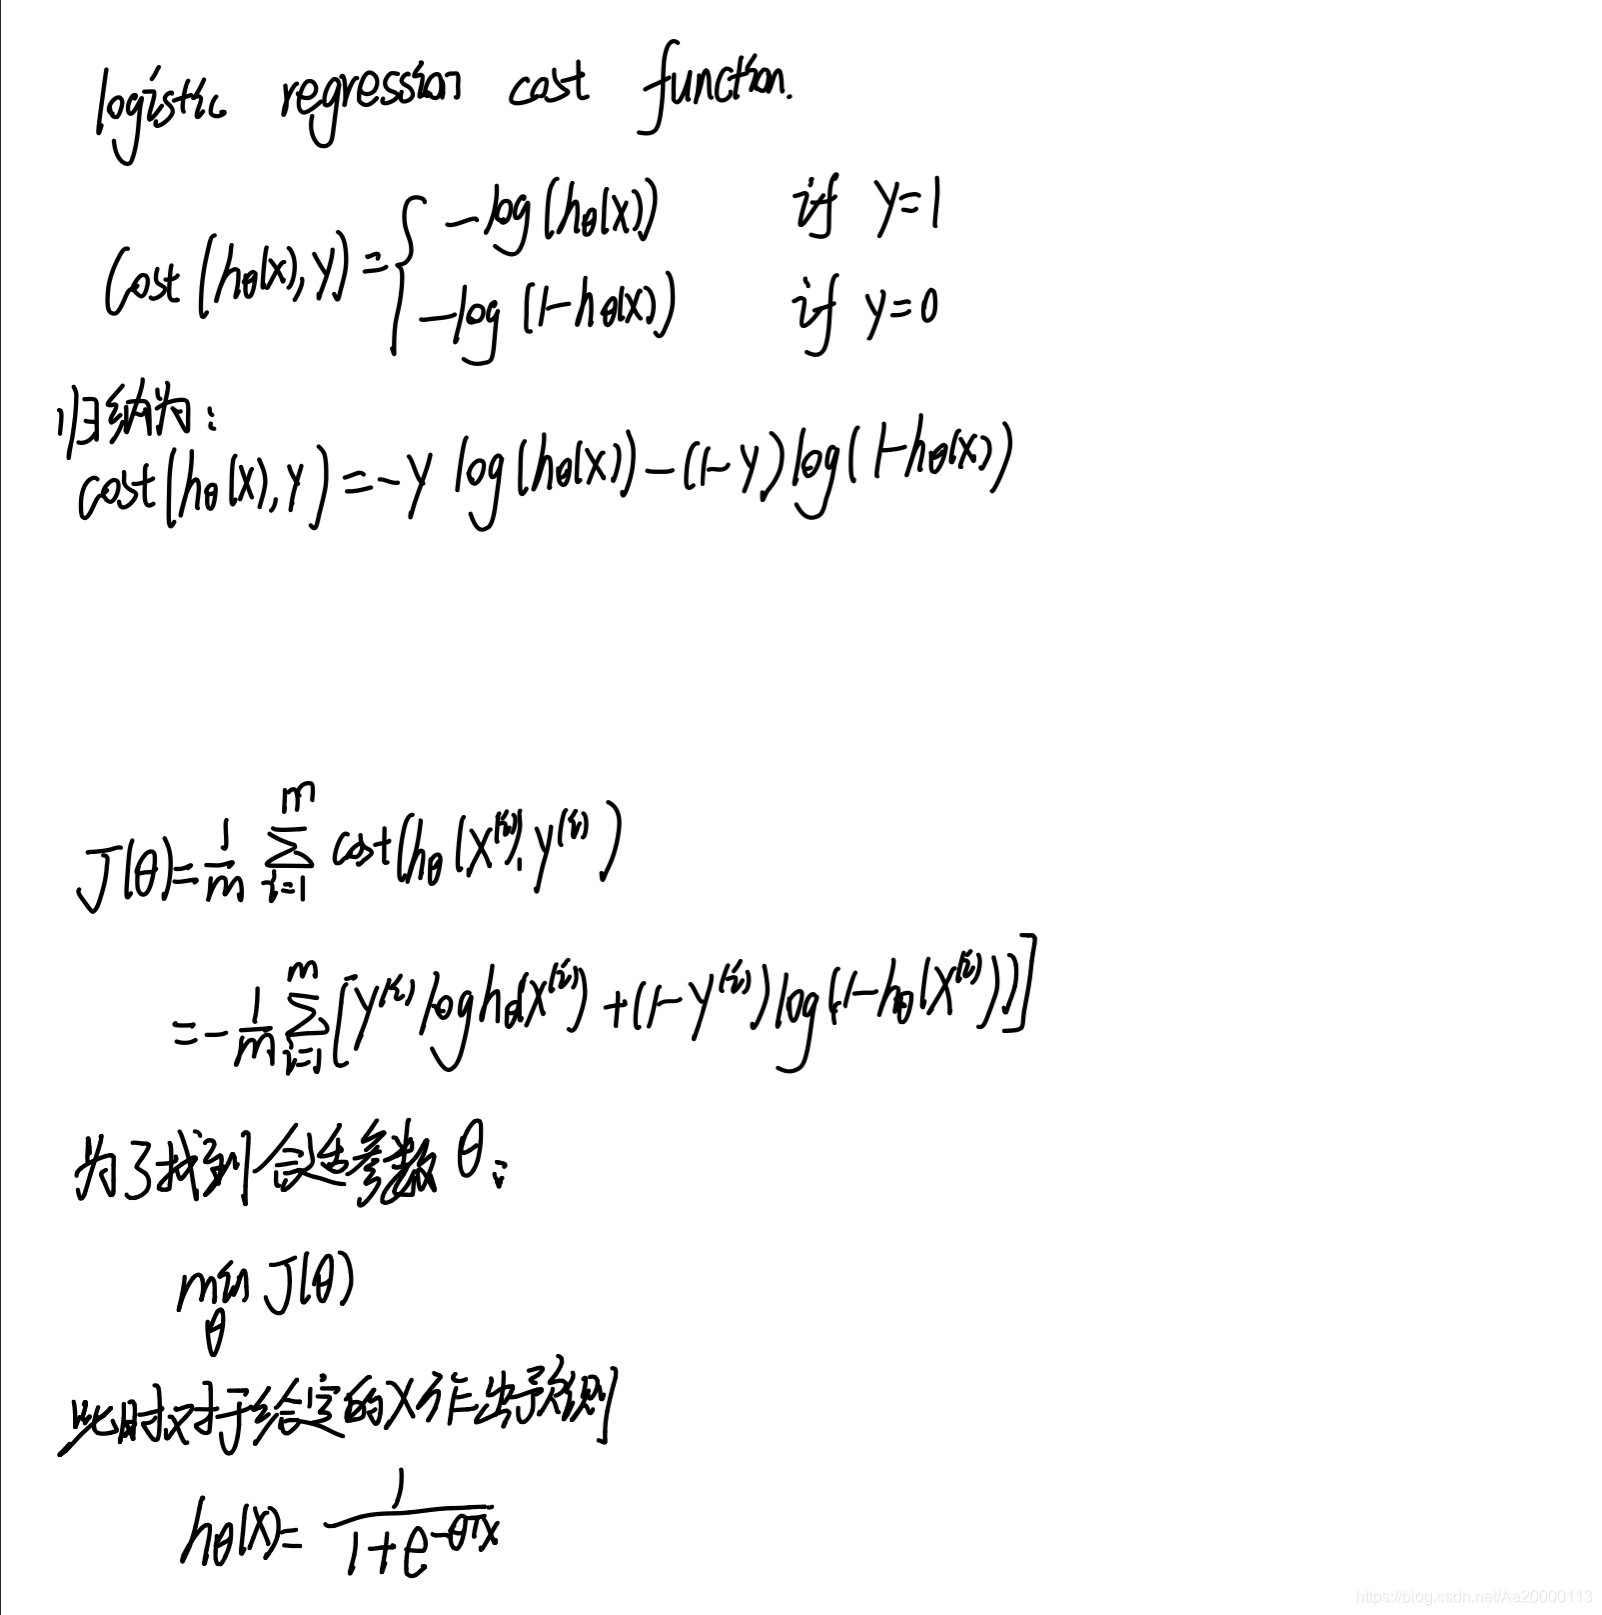 logistic regression cost function.
Cost(hθ(x),y)={ -log(hθ(x)) if y=1
-log(1-hθ(x)) if y=0
归纳为:
cost(hθ(x),y)=-y log(hθ(x))-(1-y)log(1-hθ(x))
J(θ)=1/m ∑_{i=1}^{m} cost(hθ(x^(i)),y^(i))
=-1/m ∑_{i=1}^{m}[y^(i) log hθ(x^(i))+(1-y^(i))log(1-hθ(x^(i)))]
为了找到合适参数θ:
min_θ J(θ)
此时对于给定的X作出预测
hθ(x)=1/(1+e^{-θ^T x})
https://blog.csdn.net/Aa20000113